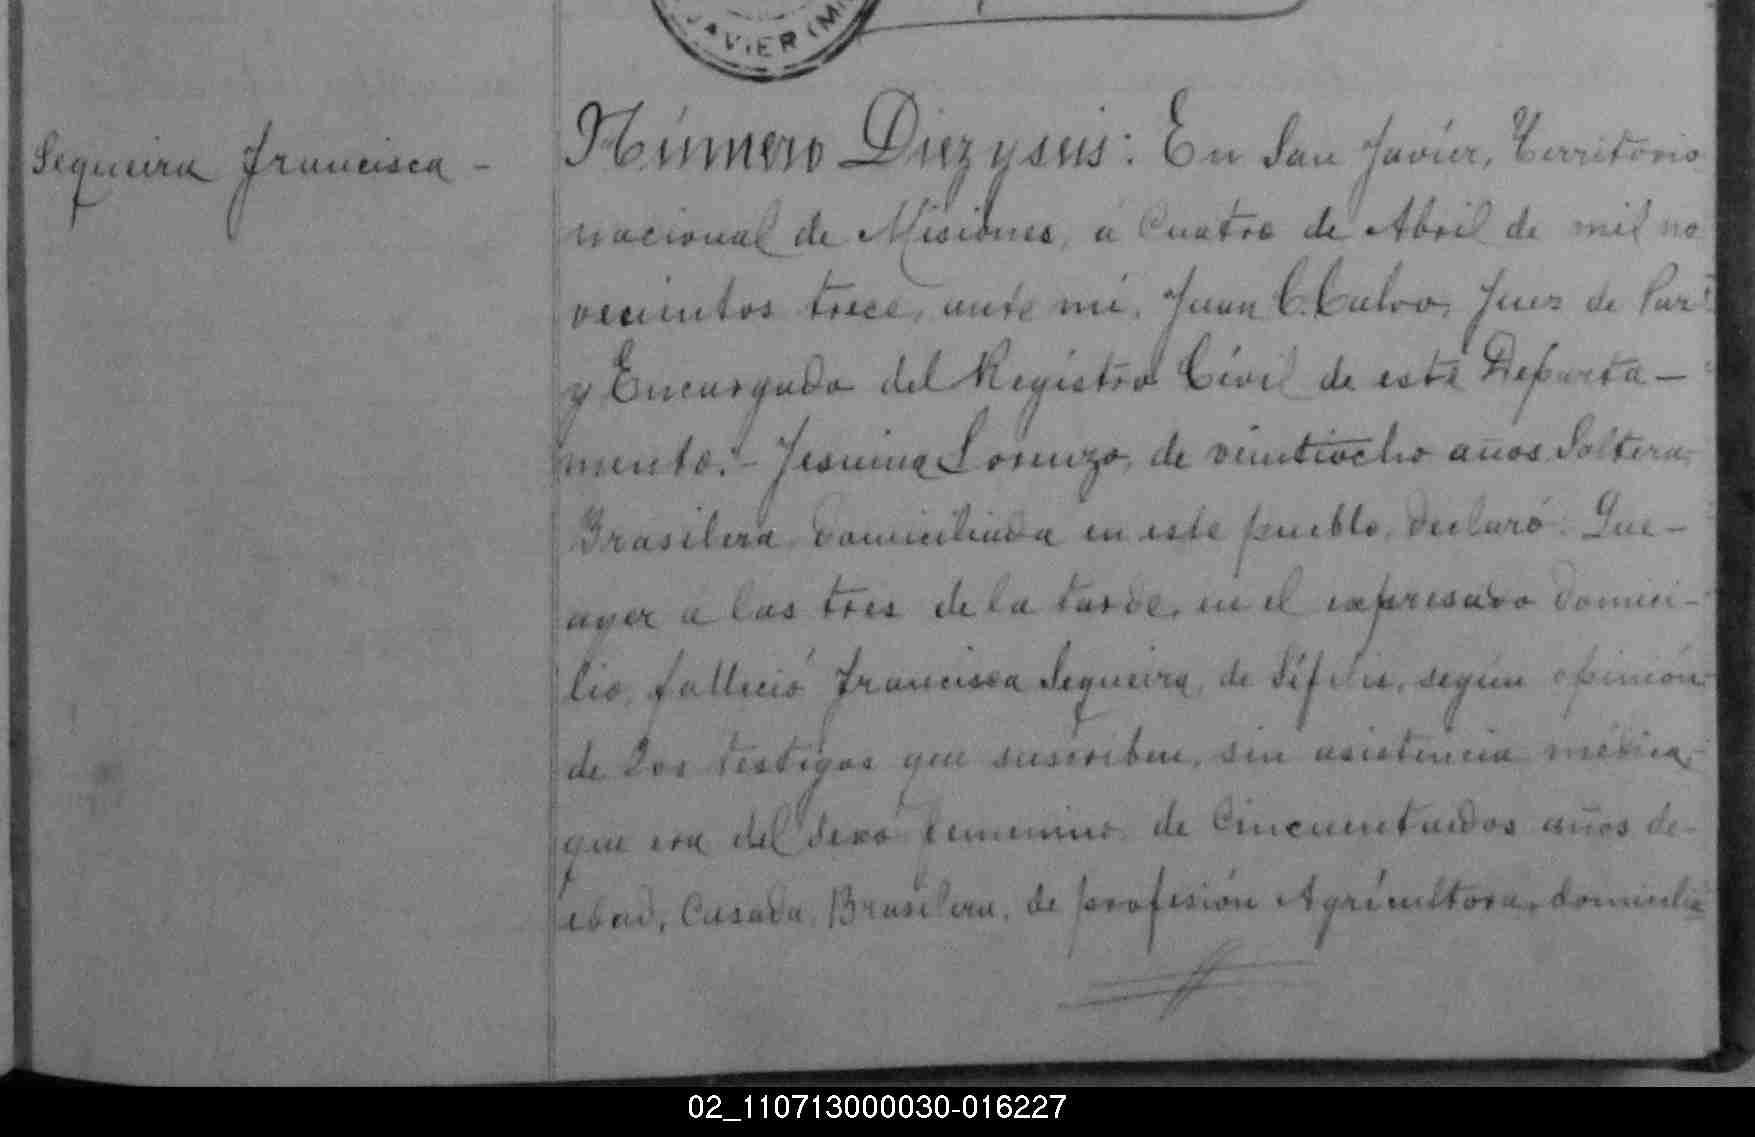 JAVIER (MI
Sequeira Francisca -
Número Diezyseis: En San Javier, Territorio
nacional de Misiones, á Cuatro de Abril de mil no
vecientos trece, ante mi, Juan C. Calvo, Juez de Paz
y Encargado del Registro Civil de este Departa-
mento.- Jesuina Lorenzo, de veintiocho años Soltera,
Brasilera, domiciliada en este pueblo, declaró: Que-
ayer á las tres de la tarde, en el expresado domici-
lio, falleció Francisca Sequeira, de Sífilis, según opinión
de los testigos que suscriben, sin asistencia médica,
que era del sexo femenino, de Cincuentaidos años de-
edad, Casada, Brasilera, de profesión Agricultora, domicilia
02_110713000030-016227